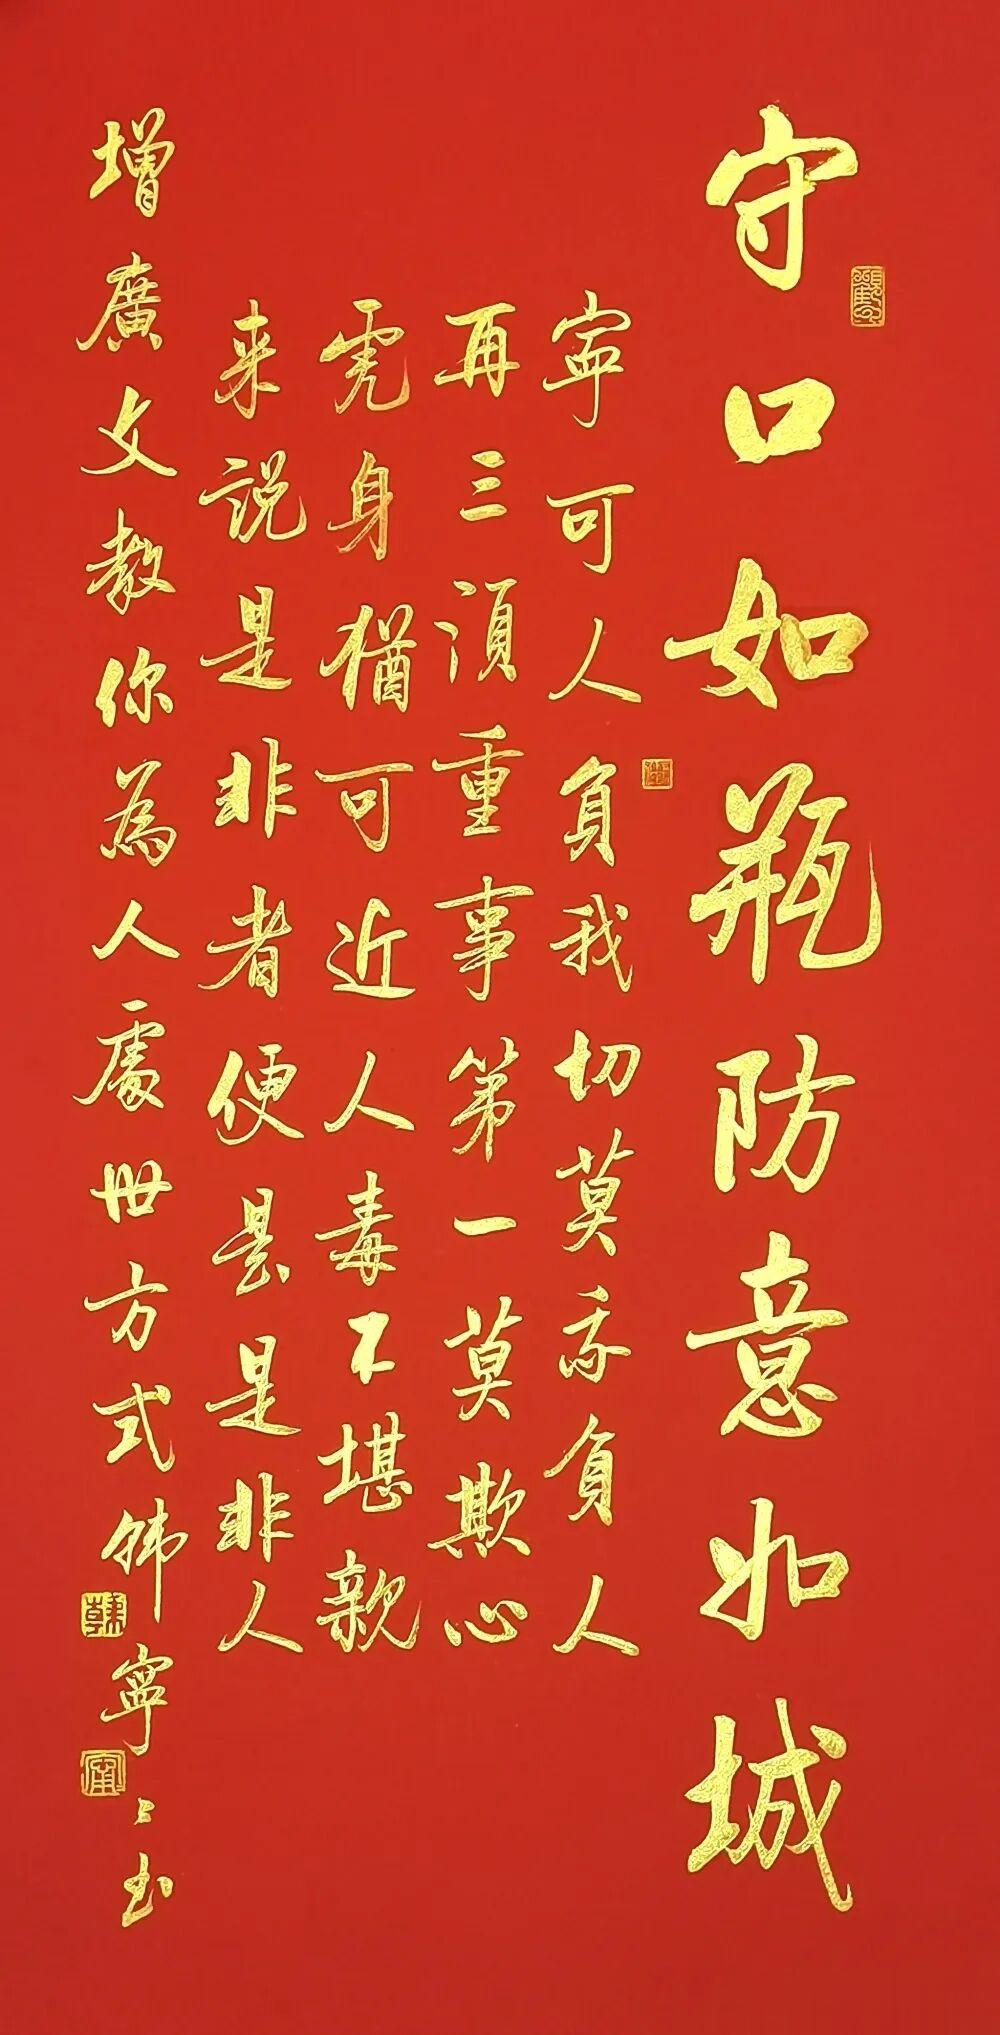 守口如瓶防意如城
寜可人負我切莫我負人
再三須重事第一莫欺心
虎身猶可近人毒不堪親
来説是非者便是是非人
增廣文教你為人處世方式韩寧寧书